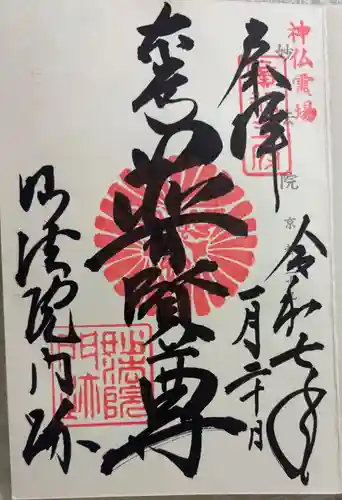 神仏霊場
妙法院 京
奉拝
令和七年
一月二十日
普賢尊
妙法院門跡